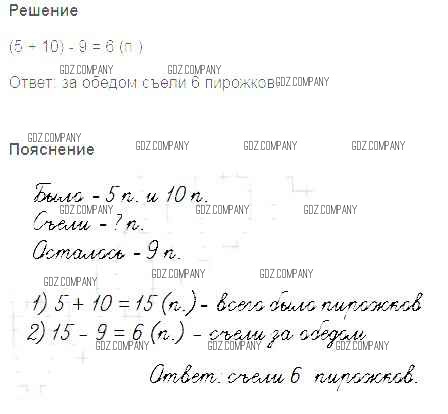 Решение
(5 + 10) - 9 = 6 (п.)
GDZ.COMPANY GDZ.COMPANY
Ответ: за обедом съели 6 пирожков. GDZ.COMPANY
GDZ.COMPANY
Пояснение GDZ.COMPANY GDZ.COMPANY GDZ.COMPANY
Было - 5 п. и 10 п.
GDZ.COMPANY GDZ.COMPANY GDZ.COMPANY
Съели - ? п.
Осталось - 9 п.
GDZ.COMPANY GDZ.COMPANY GDZ.COMPANY
1) 5 + 10 = 15 (п.) - всего было пирожков
2) 15 - 9 = 6 (п.) - съели за обедом
GDZ.COMPANY GDZ.COMPANY GDZ.COMPANY
Ответ: съели 6 пирожков.